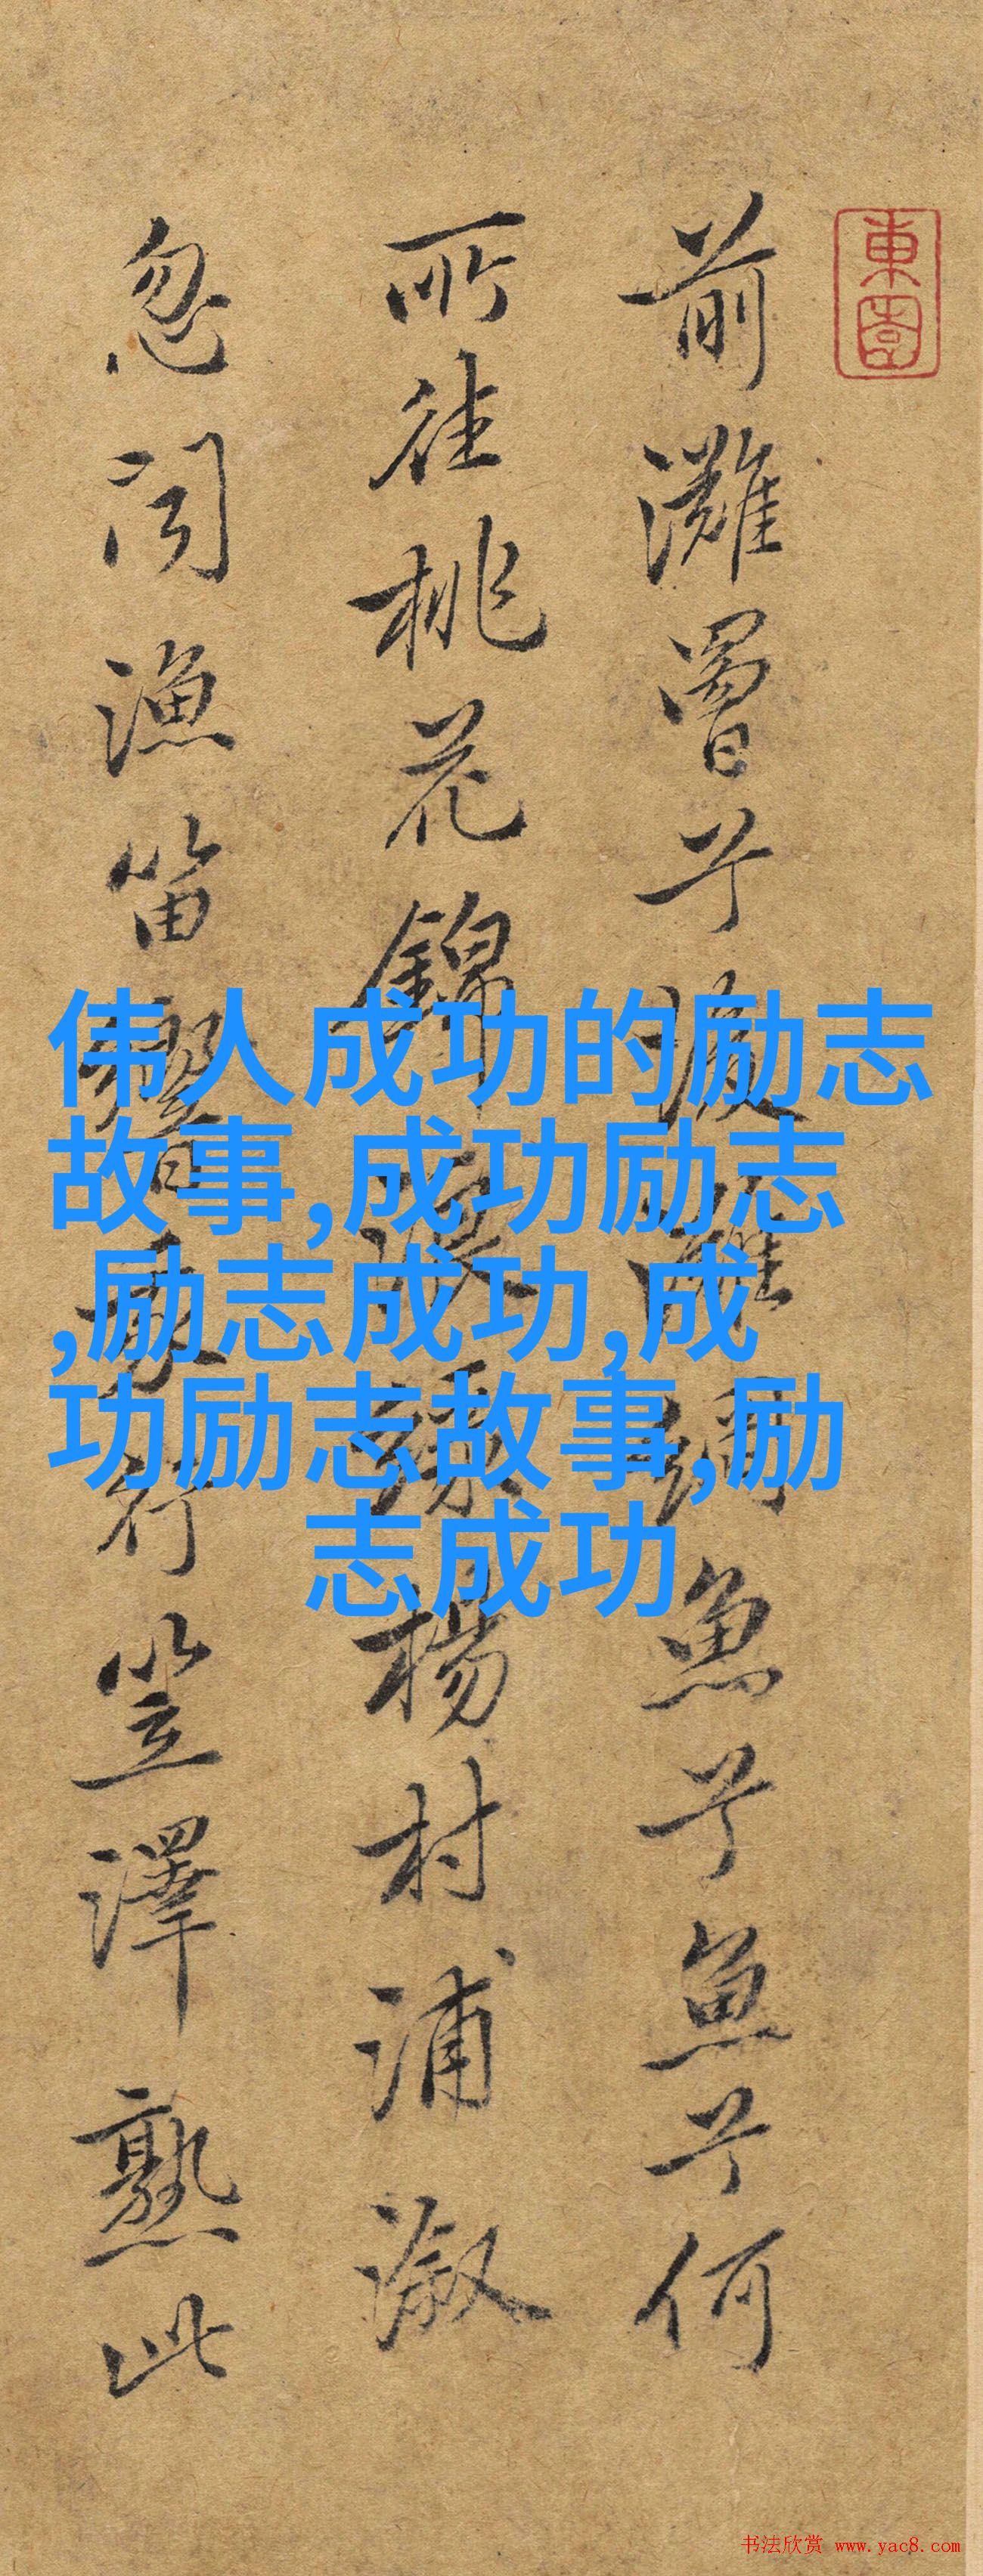 東園
前灘罾子
魚子魚子何
所往桃花錦
楊村浦溆
忽聞漁笛
行笠澤熟此
伟人成功的励志
故事,成功励志
,励志成功,成
功励志故事,励
志成功
书法欣赏 www.yac8.com